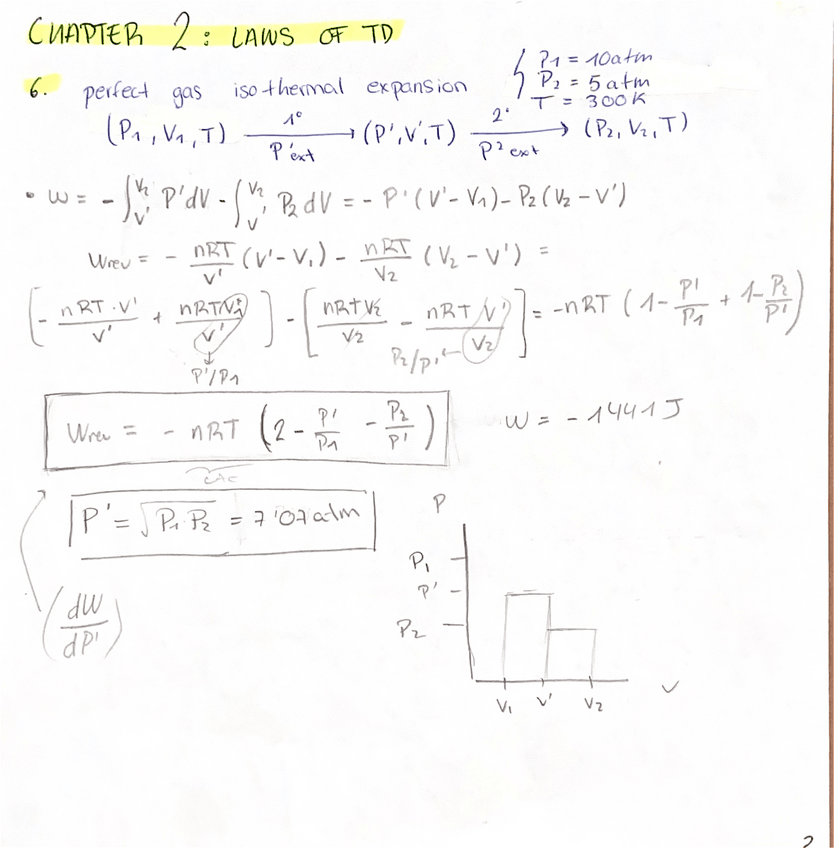 CHAPTER 2: LAWS OF TD
6. perfect gas isothermal expansion { P1 = 10atm
P2 = 5atm
T = 300K
(P1, V1, T) —1º→ P'ext (P', V', T) —2º→ P²ext (P2, V2, T)
• W = - ∫_{V'}^{V2} P'dV - ∫_{V'}^{V2} P2 dV = - P'(V'-V1) - P2(V2-V')
Wrev = - nRT/V' (V'-V1) - nRT/V2 (V2-V') =
[- nRT·V'/V' + nRTV1/V'] - [nRTV2/V2 - nRTV'/V2] = -nRT (1 - P'/P1 + 1 - P2/P')
P'/P1
P2/P'
Wrev = - nRT (2 - P'/P1 - P2/P')
W = -1441J
P' = √P1·P2 = 7'07atm
(dW/dP')
P
P1
P'
P2
V1 V' V2
V
2